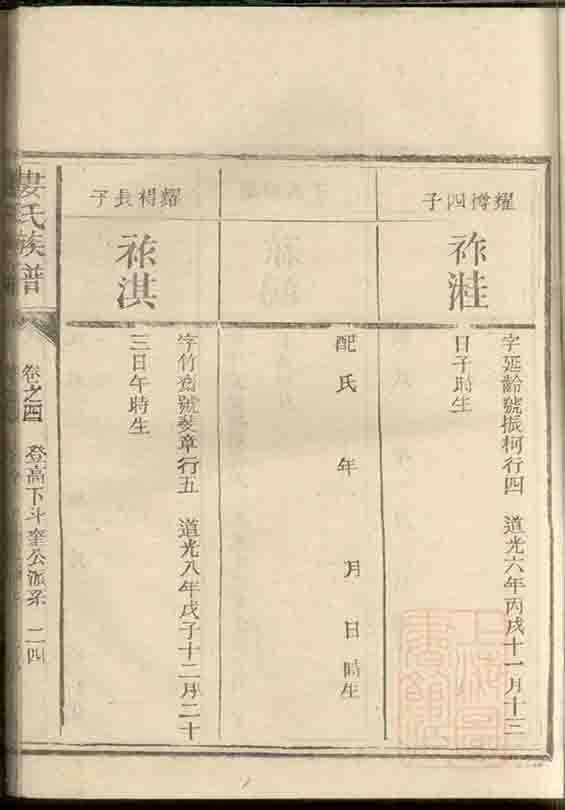 耀禣四子
祚溎
字延齡號振柯行四　道光六年丙戌十一月十三
日子時生
配氏　年　月　日　時生
耀禣長子
祚淇
字竹　號斐章行五　道光八年戊子十二月二十
三日午時生
婁氏族譜
卷之四　登高下斗奎公派系　二四
上海圖書館藏